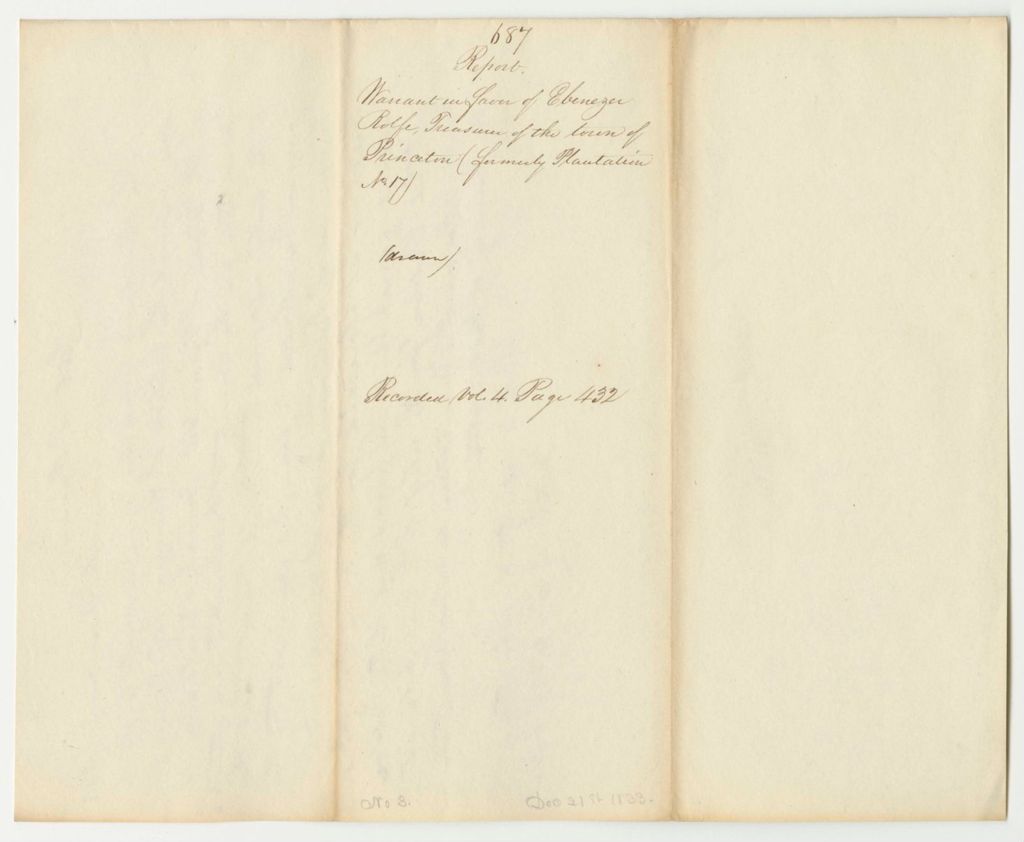 687
Report.
Warrant in favor of Ebenezer
Rolfe, Treasurer of the town of
Princeton (formerly Plantation
No 17)
(drawn)
Recorded Vol. 4. Page 432
No 3.
Dec 21st 1833.